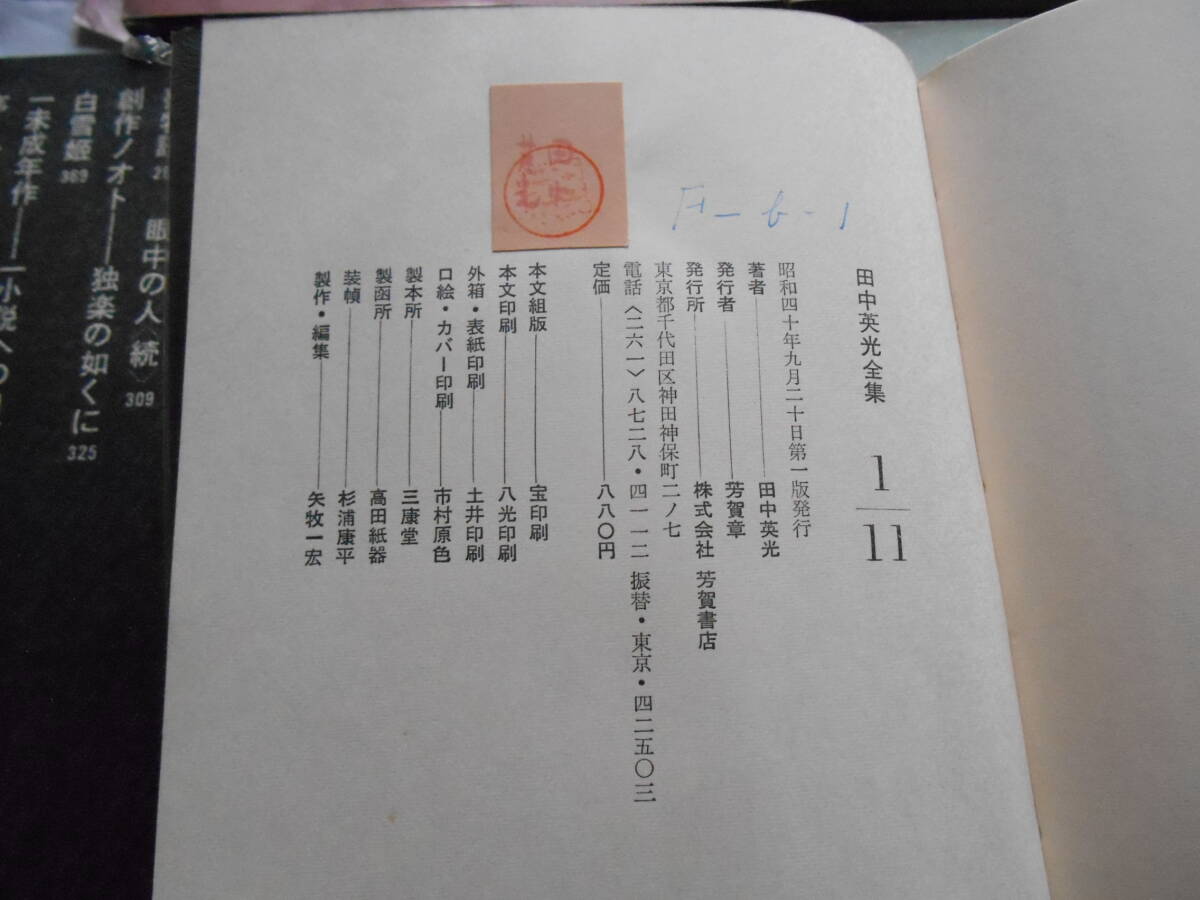 田中英光全集 1/11
昭和四十年九月二十日第一版発行
著者――田中英光
発行者――芳賀章
発行所――株式会社 芳賀書店
東京都千代田区神田神保町二ノ七
電話〈二六一〉八七二八・四一一二 振替・東京・四二五〇三
定価――八八〇円
本文組版――宝印刷
本文印刷――八光印刷
外箱・表紙印刷――土井印刷
口絵・カバー印刷――市村原色
製本所――三康堂
製函所――高田紙器
装幀――杉浦康平
製作・編集――矢牧一宏
F-6-1
眼中の人〈続〉 309
創作ノオト――独楽の如くに 325
白雪姫 369
一未成年作――